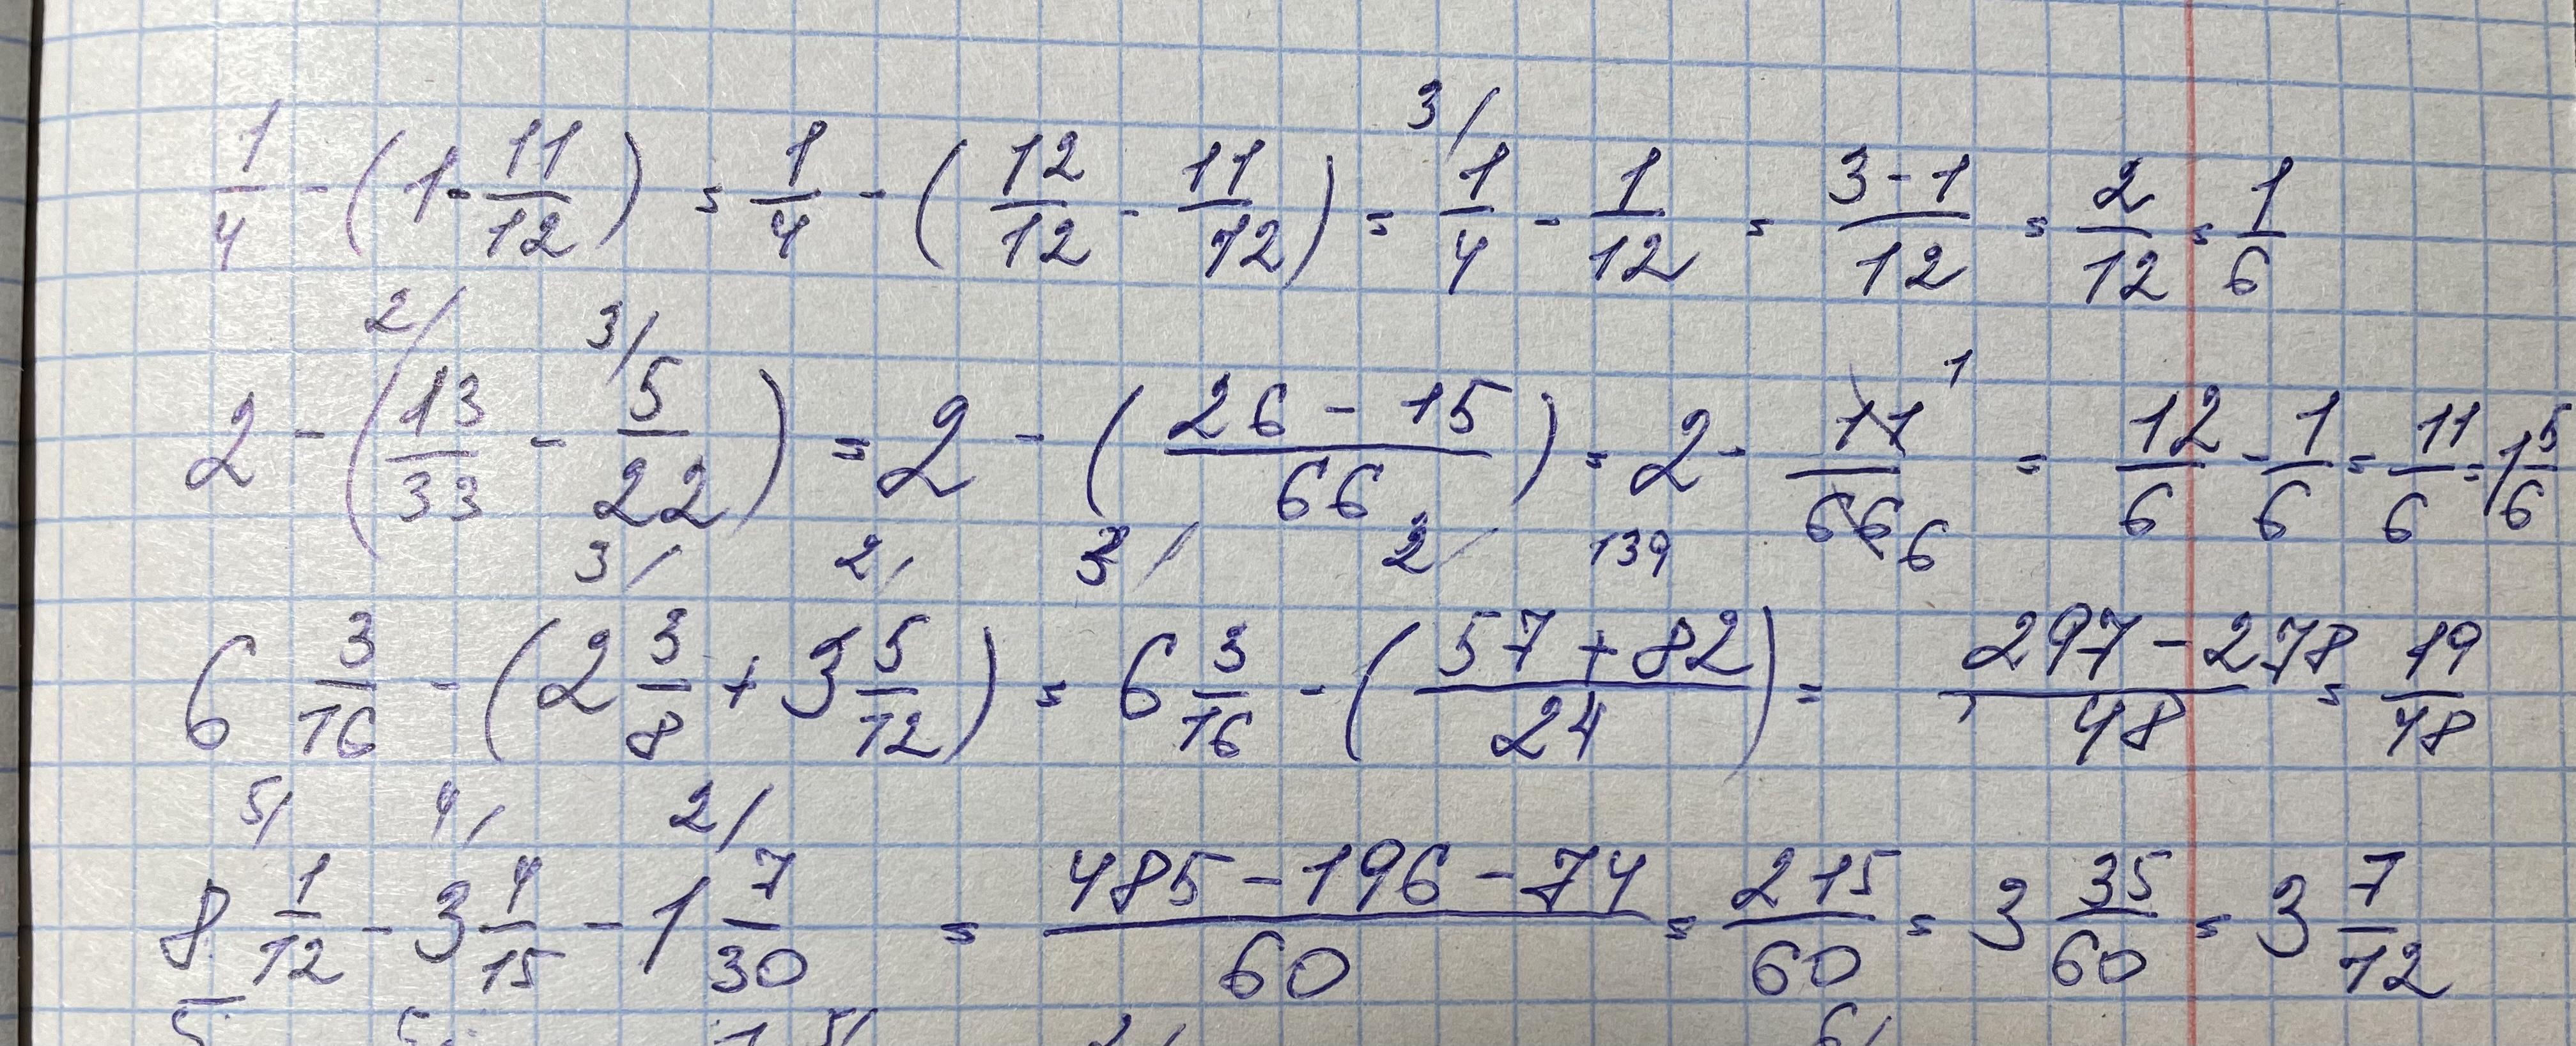 1/4 - (1 - 11/12) = 1/4 - (12/12 - 11/12) = 3/ 1/4 - 1/12 = (3-1)/12 = 2/12 = 1/6
2 - (2/ 13/33 - 3/ 5/22) = 2 - ((26 - 15)/66) = 2 - 11/66 1 6 = 12/6 - 1/6 = 11/6 = 1 5/6
6 3/16 - (3/ 2 3/8 + 2/ 3 5/12) = 3/ 6 3/16 - (2/ (57 + 82)/24 139) = (297 - 278)/48 = 19/48
5/ 8 1/12 - 4/ 3 4/15 - 2/ 1 7/30 = (485 - 196 - 74)/60 = 215/60 = 3 35/60 = 3 7/12